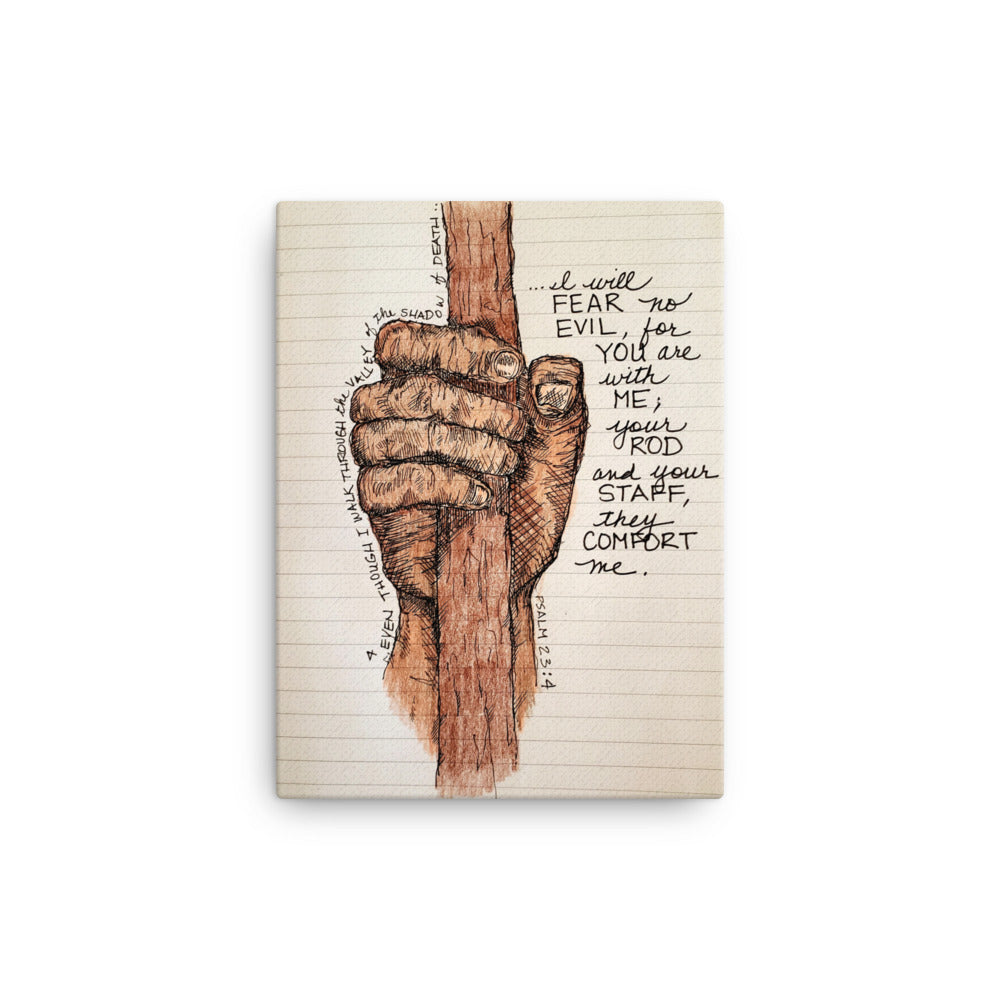 4 ..EVEN THOUGH I WALK THROUGH the VALLEY of the SHADOW of DEATH...
...I will
FEAR no
EVIL, for
YOU are
with
ME;
your
ROD
and your
STAFF,
they
COMFORT
me.
PSALM 23:4